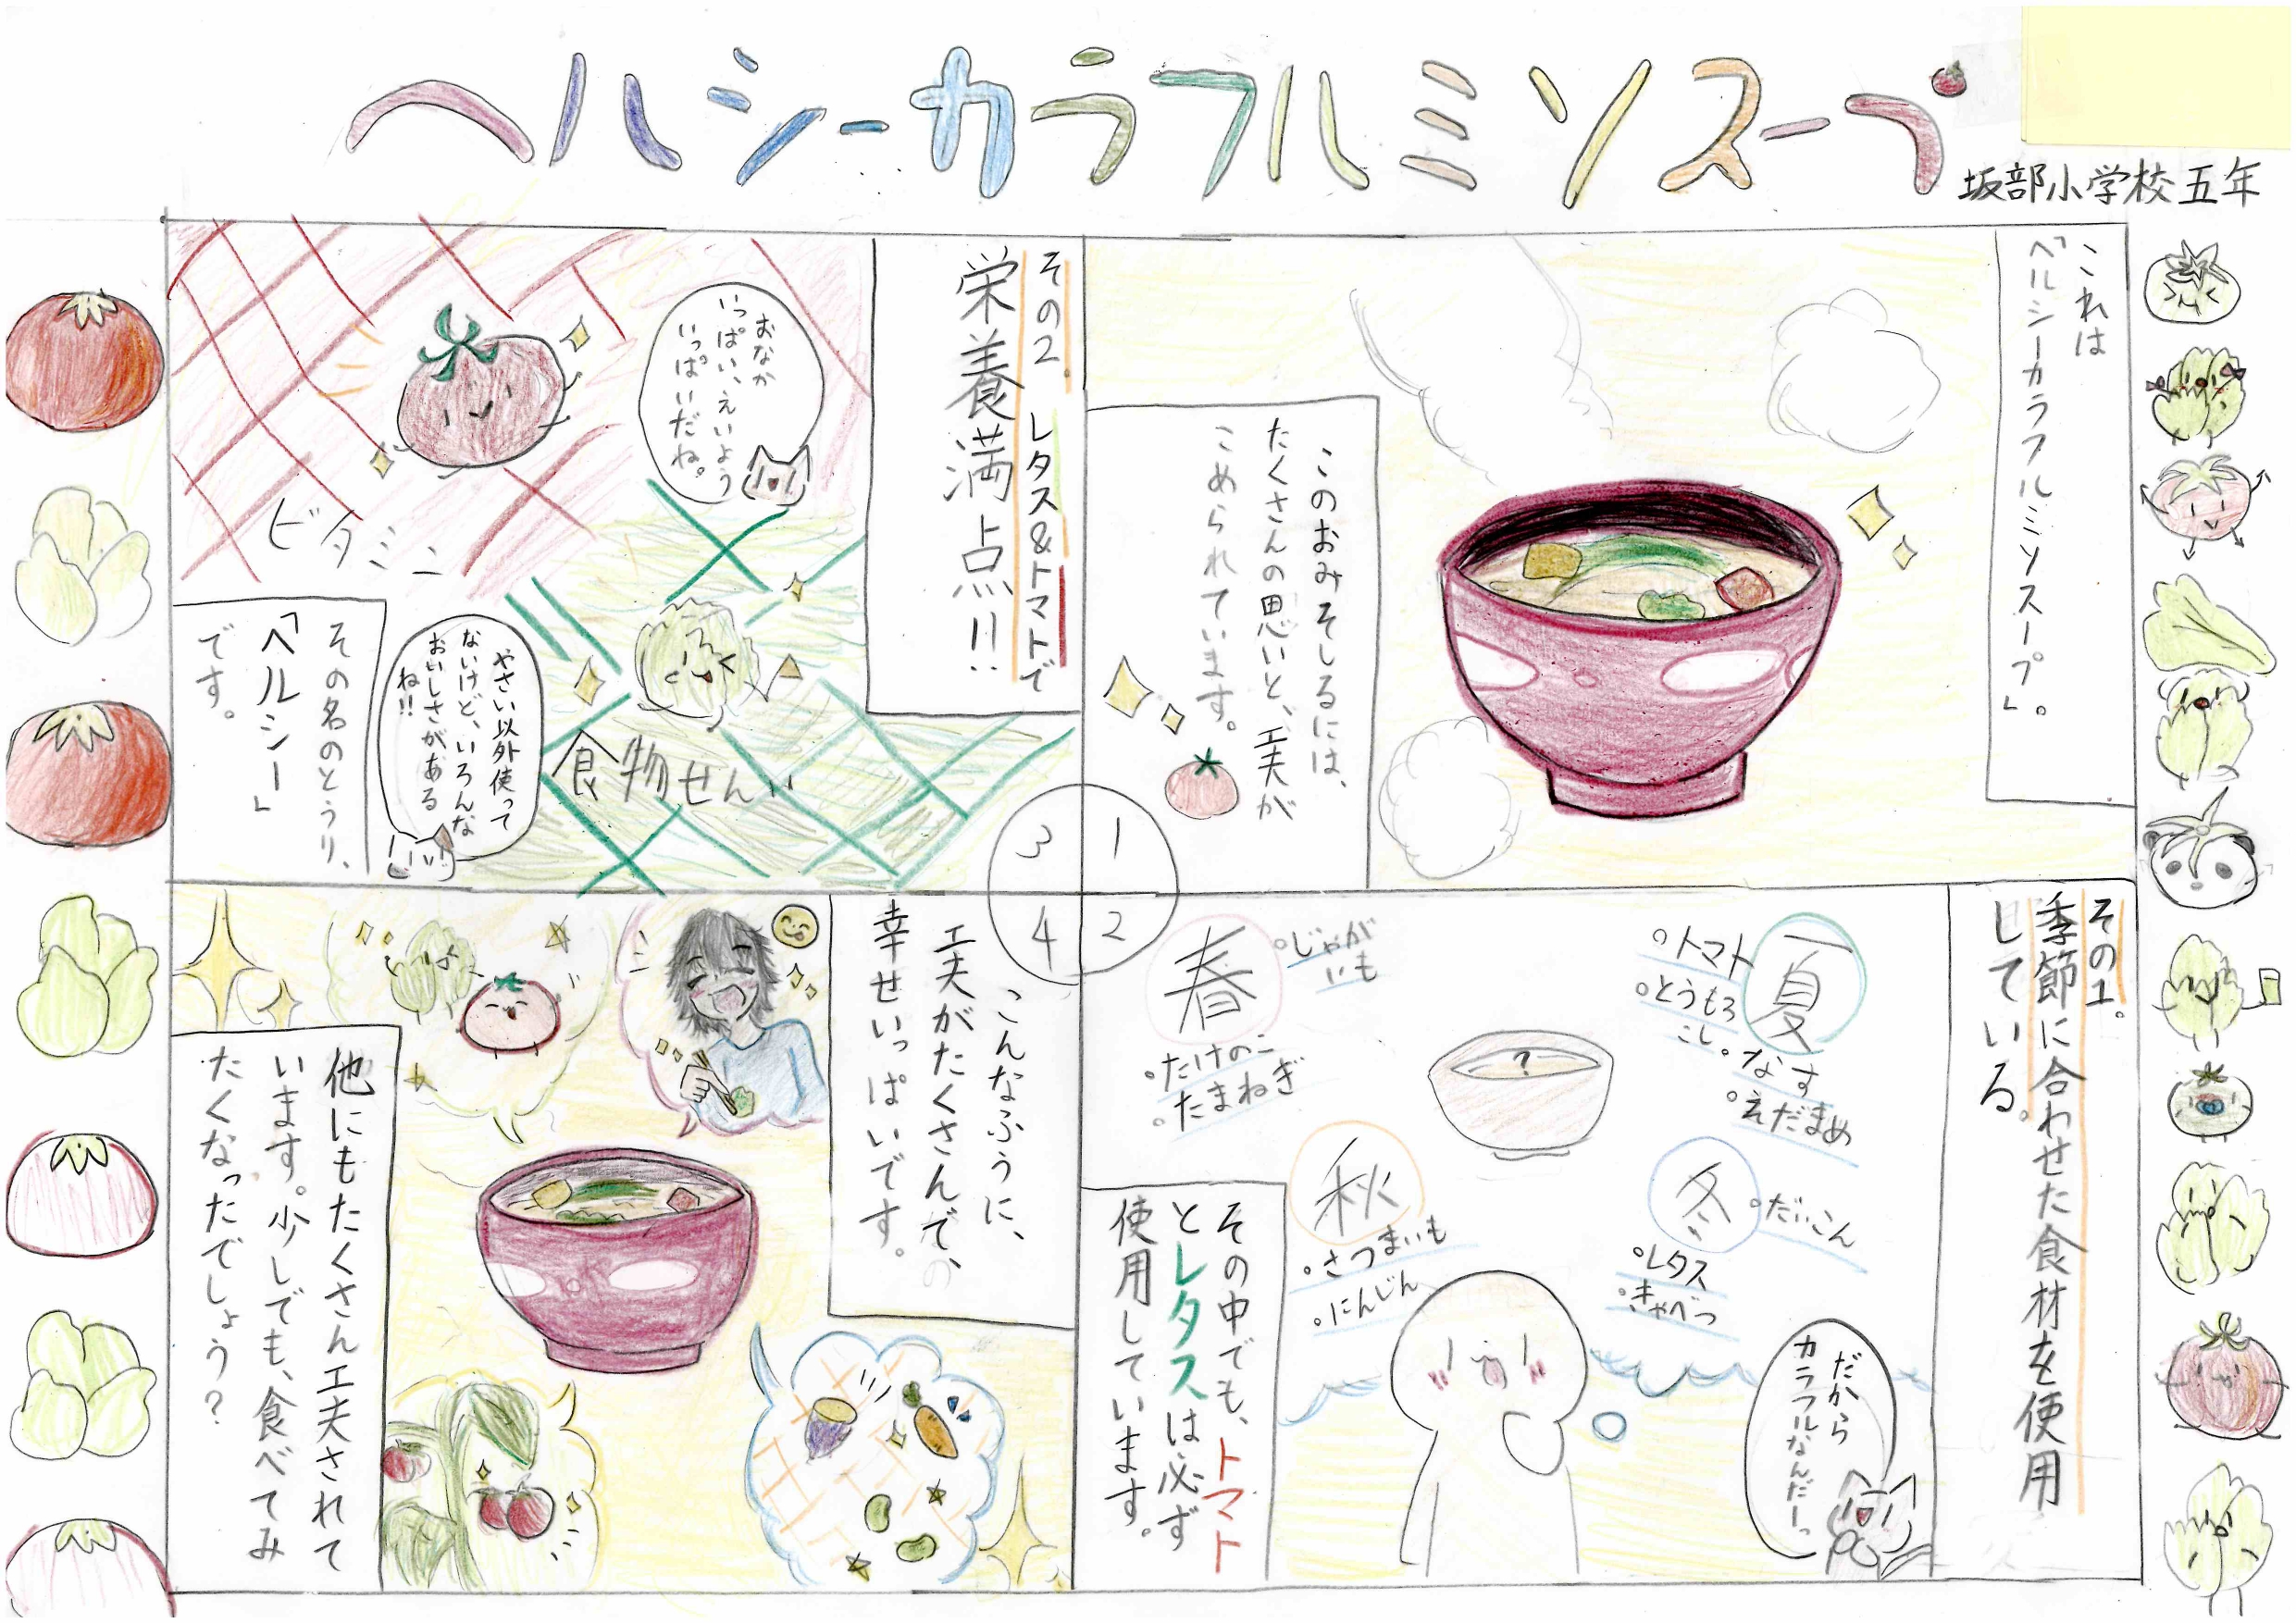 ヘルシーカラフルミソスープ
坂部小学校五年
これは
「ヘルシーカラフルミソスープ」。
このおみそしるには、
たくさんの思いと、工夫が
こめられています。
1
2
3
4
その1。
季節に合わせた食材を使用
している。
夏
。トマト
。とうもろ
こし。なす
。えだまめ
春
。じゃが
いも
。たけのこ
。たまねぎ
?
冬
。だいこん
。レタス
。きゃべつ
秋
。さつまいも
。にんじん
だから
カラフルなんだーっ
その中でも、トマト
とレタスは必ず
使用しています。
その2。レタス&トマトで
栄養満点!!
おなか
いっぱい、えいよう
いっぱいだね。
ビタミン
食物せんい
やさい以外使って
ないけど、いろんな
おいしさがある
ね!!
その名のとうり、
「ヘルシー」
です。
こんなふうに、
工夫がたくさんで、
幸せいっぱいです。
他にもたくさん工夫されて
います。少しでも、食べてみ
たくなったでしょう?